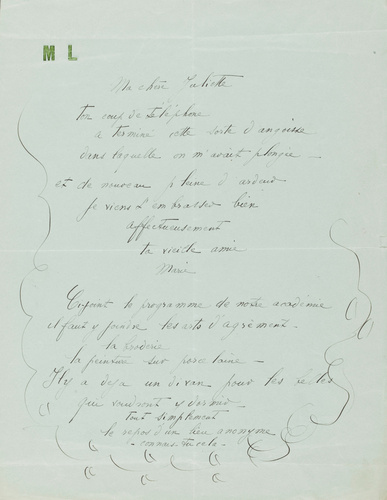 M L
Ma chère Juliette
ton coup de téléphone
a terminé cette sorte d'angoisse
dans laquelle on m'avait plongée —
et de nouveau pleine d'ardeur
je viens t'embrasser bien
affectueusement
ta vieille amie
Marie
Ci joint le programme de notre académie
il faut y joindre les arts d'agrément.
la broderie
la peinture sur porcelaine —
Il y a déjà un divan pour les belles
qui voudront y dormir
tout simplement
le repos d'un dieu anonyme
- connais-tu cela -